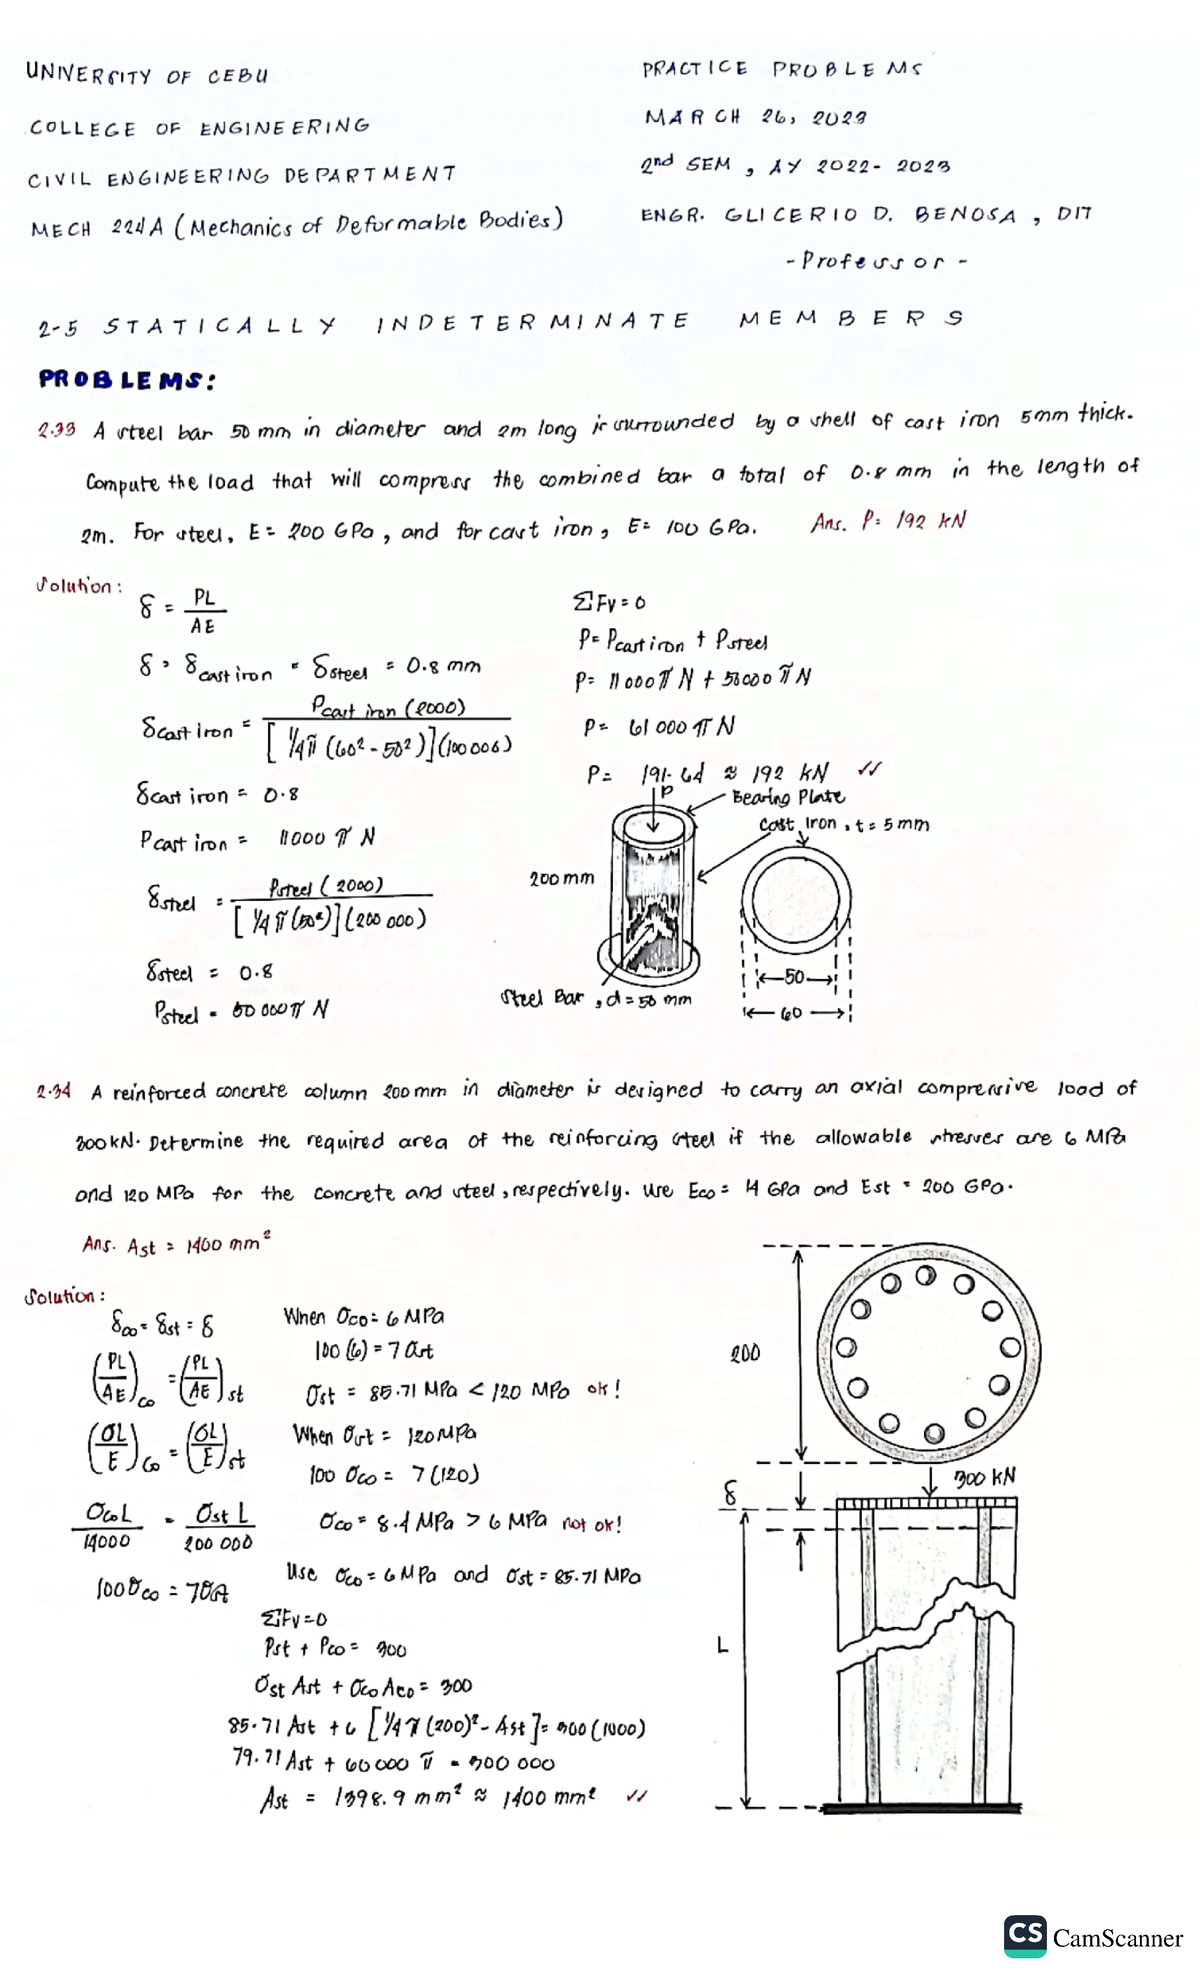 UNIVERSITY OF CEBU
COLLEGE OF ENGINEERING
CIVIL ENGINEERING DEPARTMENT
MECH 224A (Mechanics of Deformable Bodies)
PRACTICE PROBLEMS
MARCH 26, 2023
2nd SEM, AY 2022-2023
ENGR. GLICERIO D. BENOSA, DIT
- Professor -
2-5 STATICALLY INDETERMINATE MEMBERS
PROBLEMS:
2.33 A steel bar 50 mm in diameter and 2m long is surrounded by a shell of cast iron 5mm thick.
Compute the load that will compress the combined bar a total of 0.8 mm in the length of
2m. For steel, E = 200 GPa, and for cast iron, E = 100 GPa. Ans. P = 192 kN
Solution:
δ = PL / AE
δ = δcast iron = δsteel = 0.8 mm
δcast iron = Pcast iron (2000) / [¼π (60² - 50²)](100 000)
δcast iron = 0.8
Pcast iron = 11000 π N
δsteel = Psteel (2000) / [¼π (50²)](200 000)
δsteel = 0.8
Psteel = 50 000π N
ΣFv = 0
P = Pcast iron + Psteel
P = 11 000π N + 50000 π N
P = 61 000 π N
P = 191.64 ≈ 192 kN ✓✓
P
Bearing Plate
Cast Iron, t = 5 mm
200 mm
Steel Bar, d = 50 mm
50
60
2.34 A reinforced concrete column 200 mm in diameter is designed to carry an axial compressive load of
300 kN. Determine the required area of the reinforcing steel if the allowable stresses are 6 MPa
and 120 MPa for the concrete and steel, respectively. Use Eco = 14 GPa and Est = 200 GPa.
Ans. Ast = 1400 mm²
Solution:
δco = δst = δ
(PL / AE)co = (PL / AE)st
(σL / E)co = (σL / E)st
σco L / 14000 = σst L / 200 000
100σco = 7σst
When σco = 6 MPa
100 (6) = 7 σst
σst = 85.71 MPa < 120 MPa ok!
When σst = 120MPa
100 σco = 7 (120)
σco = 8.4 MPa > 6 MPa not ok!
Use σco = 6 MPa and σst = 85.71 MPa
ΣFv = 0
Pst + Pco = 300
σst Ast + σco Aco = 300
85.71 Ast + 6 [¼ π (200)² - Ast] = 300 (1000)
79.71 Ast + 60 000 π = 300 000
Ast = 1398.9 mm² ≈ 1400 mm² ✓✓
200
300 kN
δ
L
CS CamScanner